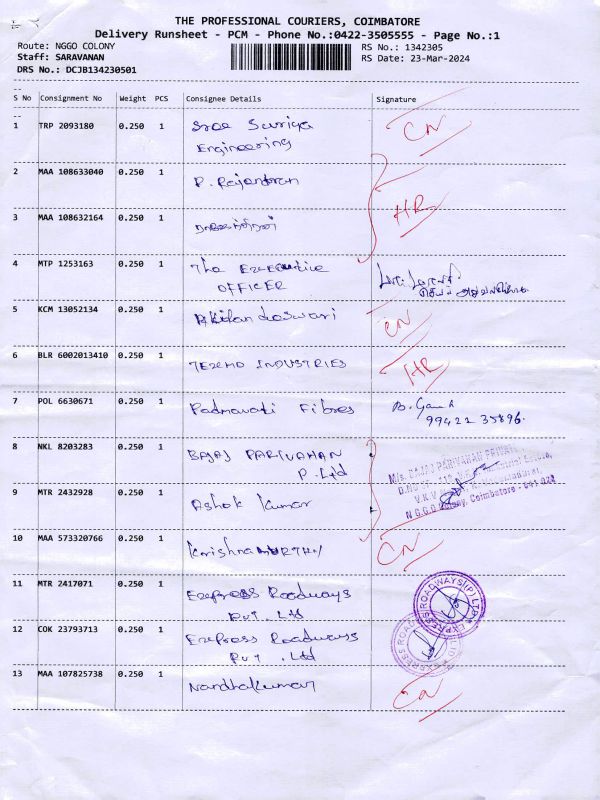 THE PROFESSIONAL COURIERS, COIMBATORE
Delivery Runsheet - PCM - Phone No.:0422-3505555 - Page No.:1
Route: NGGO COLONY
RS No.: 1342305
Staff: SARAVANAN
RS Date: 23-Mar-2024
DRS No.: DCJB134230501
S No Consignment No Weight PCS Consignee Details Signature
1 TRP 2093180 0.250 1 Sree Suriya CN
Engineering
2 MAA 108633040 0.250 1 P. Rajendran
HR
3 MAA 108632164 0.250 1
4 MTP 1253163 0.250 1 The Executive
OFFICER
5 KCM 13052134 0.250 1 Akilandeswari CN
6 BLR 6002013410 0.250 1 INDUSTRIES HR
7 POL 6630671 0.250 1 Padmavati Fibres
99422 35896
8 NKL 8203283 0.250 1 BAJAJ PARIVAHAN
P. Ltd
M/s. BAJAJ PARIVAHAN PRIVATE
N.G.G.O Colony, Coimbatore - 641 022
9 MTR 2432928 0.250 1 Ashok Kumar
10 MAA 573320766 0.250 1 KrishnaMURTHY CN
11 MTR 2417071 0.250 1 Express Roadways
Pvt. Ltd
12 COK 23793713 0.250 1 Express Roadways
Pvt. Ltd
13 MAA 107825738 0.250 1 Nandhakumar CN